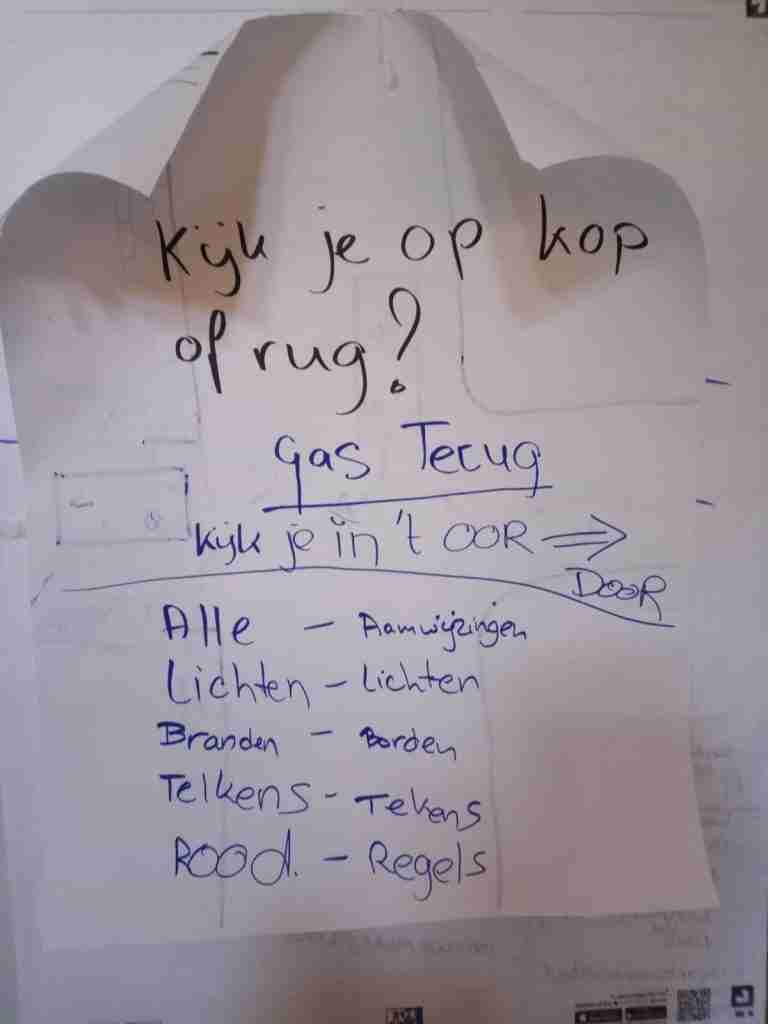 Kijk je op kop
of rug?
gas Terug
kijk je in 't OOR ⇒
DOOR
Alle - Aanwijzingen
Lichten - lichten
Branden - Borden
Telkens - Tekens
ROOd. - Regels